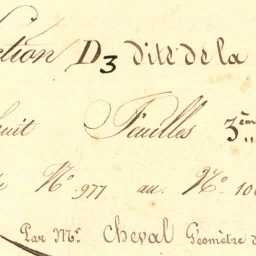 ction D3 dite de la
huit Feuilles 3ème
N° 977 au N° 100
Par Mr. Cheval Géomètre d